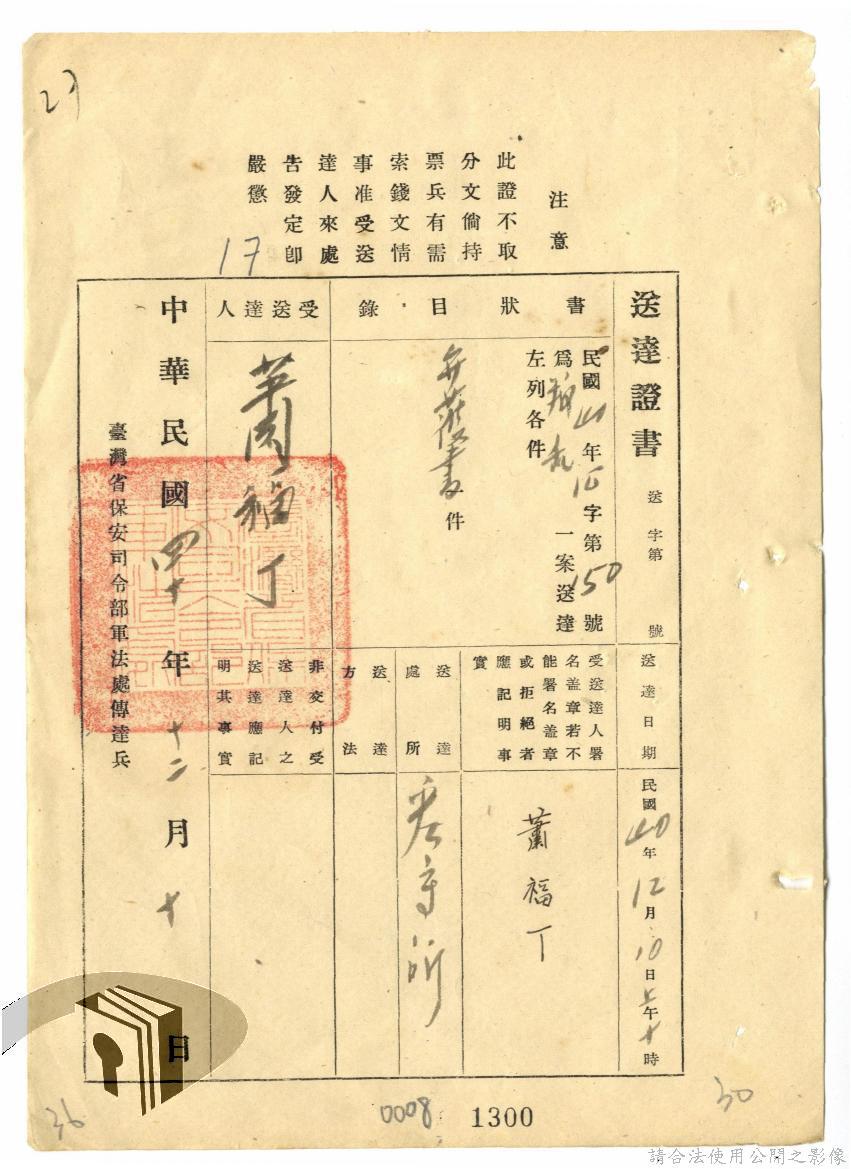 27
注意
此證不取
分文倘持
票兵有需
索錢文情
事准受送
達人來處
告發定卽
嚴懲
17
送達證書
送字第 號
送達日期
民國40年12月10日上午十時
書狀目錄
民國40年 字第150號
為 一案送達
左列各件
書一件
受送達人署
名蓋章若不
能署名蓋章
或拒絕者
應記明事
實
蕭福丁
送達處所
看守所
送達方法
受送達人
蕭福丁
非交付受
送達人之
送達應記
明其事實
中華民國四十年十二月十日
臺灣省保安司令部軍法處傳達兵
36
0008
1300
30
請合法使用公開之影像